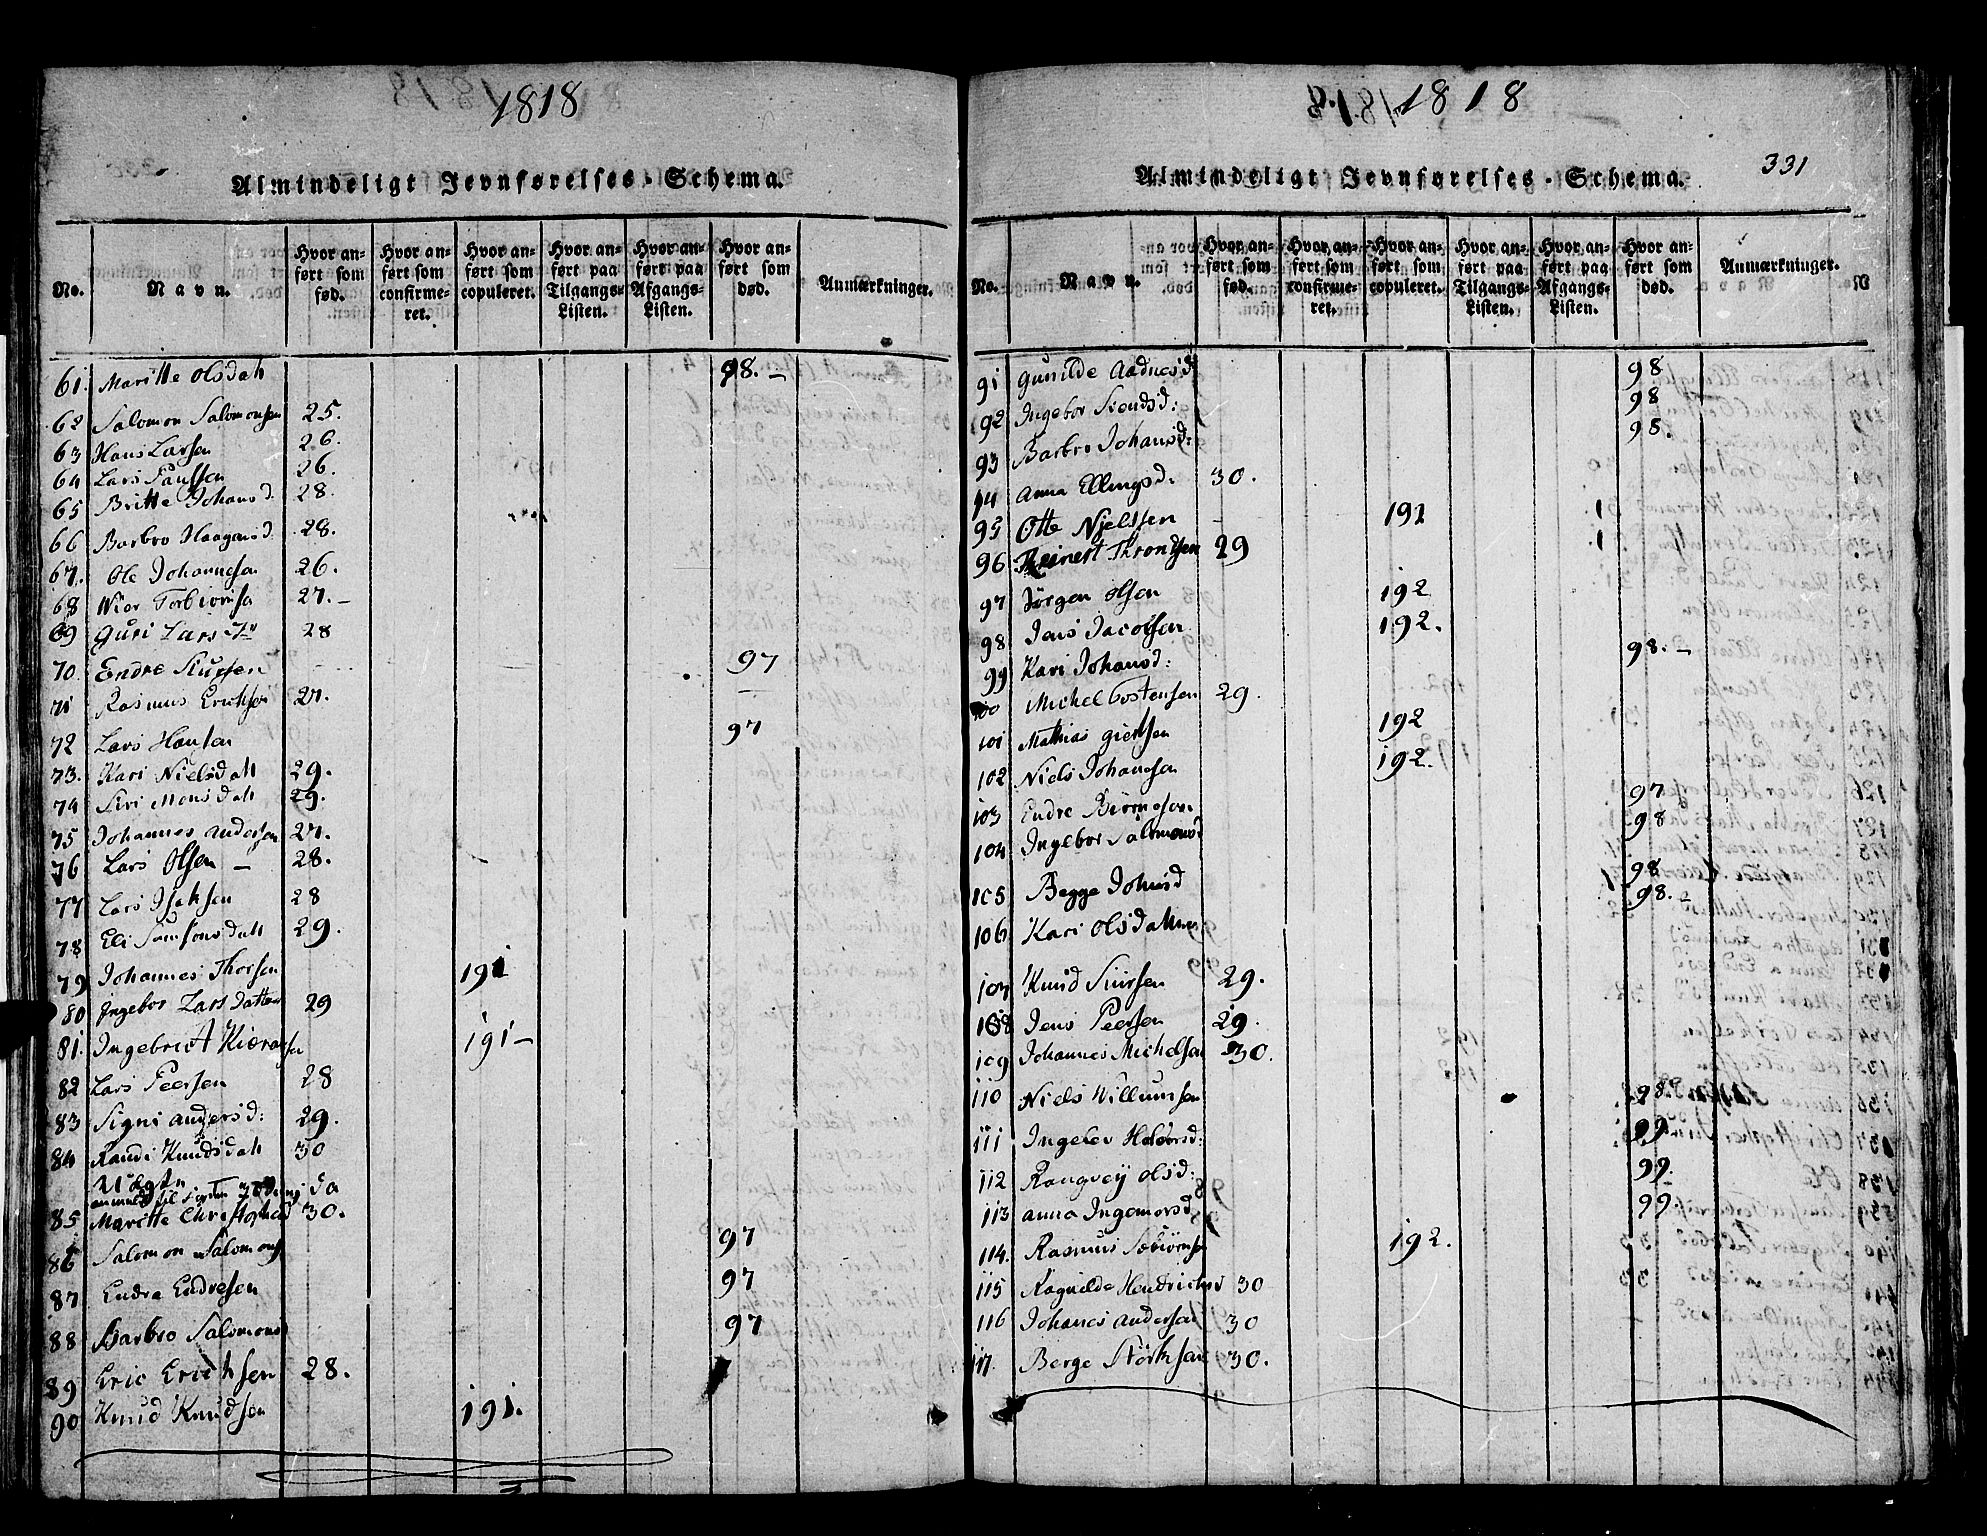 1818
Almindeligt Jevnførelses-Schema.
No. Navn. Hvor anført som fød. Hvor anført som confirmeret. Hvor anført som copuleret. Hvor anført paa Tilgangs-Listen. Hvor anført paa Afgangs-Listen. Hvor anført som død. Anmærkninger.
61. Maritte Olsdatt 98. –
62 Salomon Salomonsen 25.
63 Hans Larsen 26.
64 Lars Paulsen 26.
65 Britte Johansd. 28.
66 Barbro Haagensd. 28.
67. Ole Johannesen 26.
68 Nier Torbiornse 27. –
69 Guri Larsd 28
70. Endre Siursen 97
71 Rasmus Erichsen 27.
72 Lars Hansen 97
73. Kari Nielsdatt 29.
74 Siri Monsdatt 29.
75 Johannes Andersen 27.
76 Lars Olsen – 28.
77 Lars Isaksen 28
78 Eli Samsonsdatt 29.
79 Johannes Thorsen 191
80 Ingebor Larsdatter 29
81. Ingebrict Kieransen 191 –
82 Lars Peersen 28
83 Signi Andersd: 29.
84 Randi Knudsdatt 30
85 Maritte Christophersd 30.
86 Salomon Salomons 97
87 Endre Endresen 97
88 Barbro Salomons 97
89 Eric Erichsen 28.
90 Knud Knudsen 191.
1818
331
Almindeligt Jevnførelses-Schema.
No. Navn. Hvor anført som fød. Hvor anført som confirmeret. Hvor anført som copuleret. Hvor anført paa Tilgangs-Listen. Hvor anført paa Afgangs-Listen. Hvor anført som død. Anmærkninger.
91 Gunilde Aadnesd 98
92 Ingebor Siurdsd: 98
93 Barbro Johansd: 98.
94 Anna Ellingsd. 30.
95 Otte Njelssen 191
96 Reinert Throndsen 29
97 Jörgen Olsen 192
98 Jens Jacobsen 192.
99 Kari Johansd: 98. –
100 Michel Tostensen 29.
101 Mathias Giertsen 192
102 Niels Johansen 192.
103 Endre Biörnesen 97
104 Ingebor Salomons 98
105 Begge Johnsd 98
106 Kari Olsdatter 98. –
107 Knud Siursen 29.
108 Jens Peersen 29.
109 Johannes Michelsen 30.
110 Niels Willumsen 98.
111 Ingebor Halvorsd: 99
112 Rangvey Olsd: 99.
113 Anna Ingemorsd. 99
114. Rasmus Sebiörnsen 192.
115 Ragnilde Hendrichsd 30
116 Johanes Andersen 30
117. Berge Störksen 30.